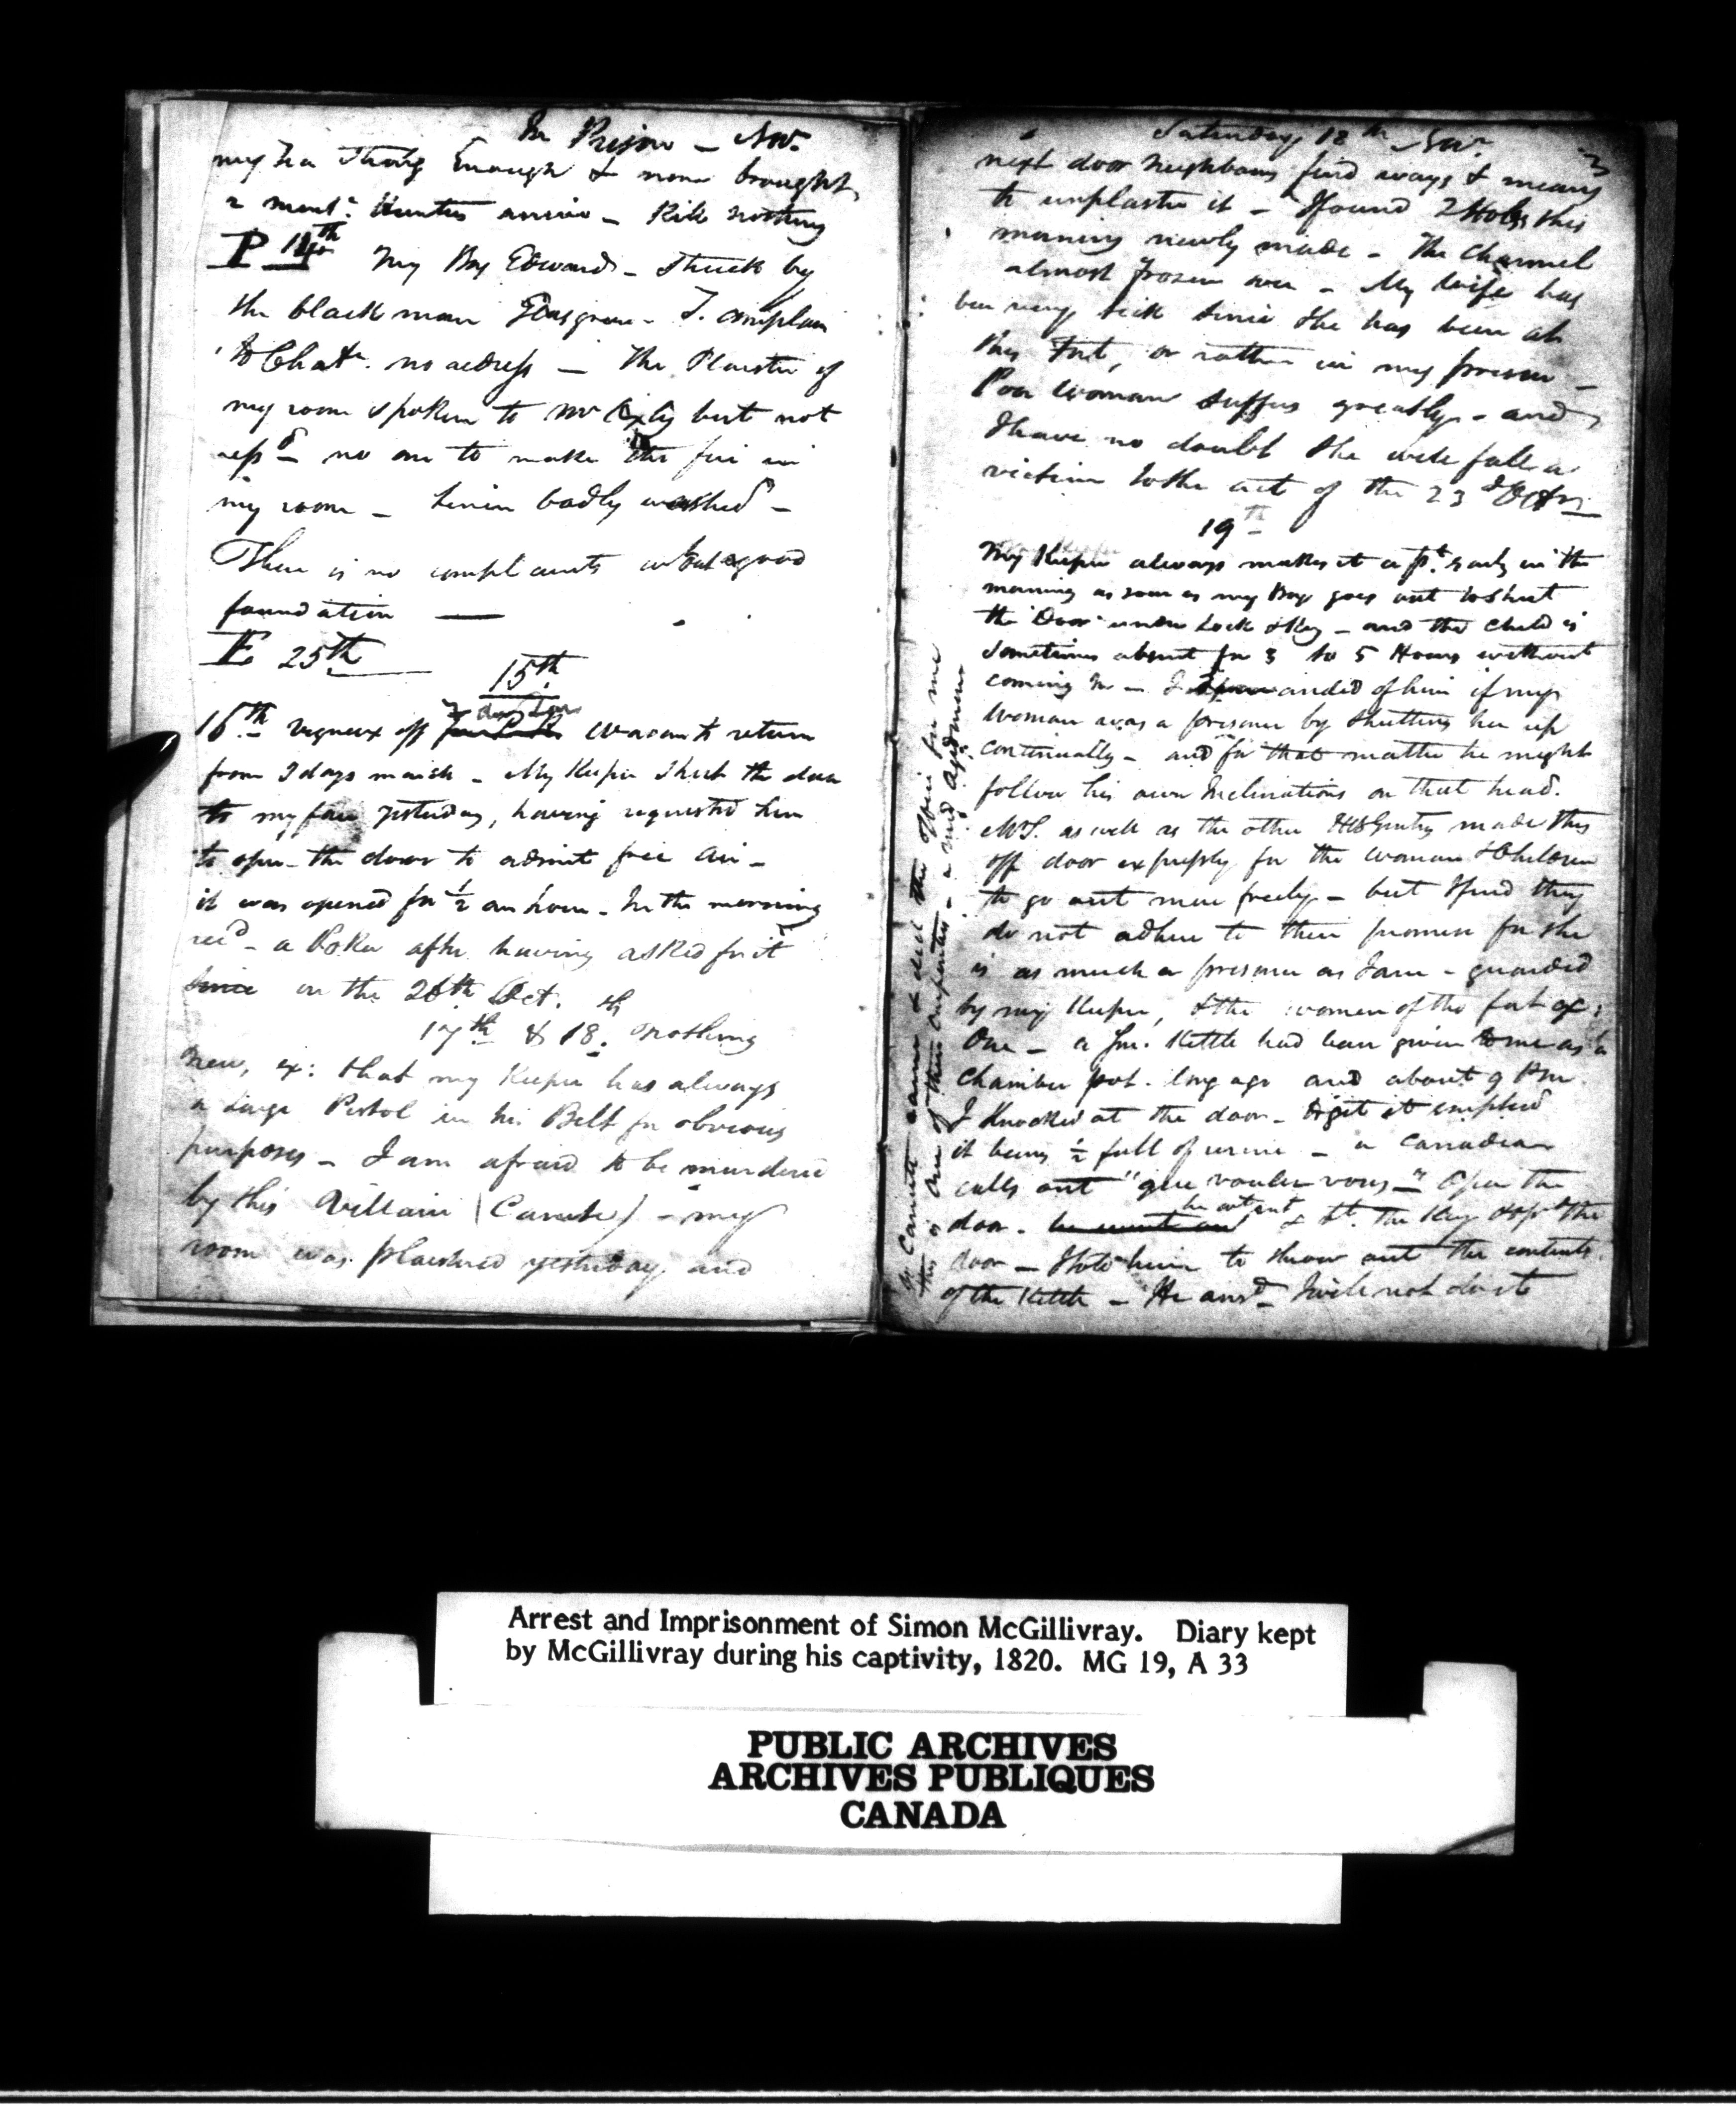 In Prison – Nov.
my Tea strong Enough & none brought
2 Hunters arrive – Kill nothing
P 14th My Boy Edward – struck by
the black man Glasgow – I complain
to no redress – The Plaister of
my room spoken to Mr but not
no one to make the fire in
my room – Linen badly washed –
There is no complaints without good
foundation —
E 25th
15th
16th Vigneux off to return
from 2 days march – My Keeper shut the door
to my face yesterday, having requested him
to open the door to admit free air –
it was opened for ½ an hour – In the morning
recd – a Poker after having asked for it
since on the 26th Oct.
17th & 18th Nothing
new, ex: that my Keeper has always
a large Pistol in his Belt for obvious
purposes – I am afraid to be murdered
by this Villain (Canute) – my
room was plaistered yesterday and
Saturday 18th Novr
next door neighbours find ways & means
to unplaster it – I found 2 Holes this
morning newly made – The Channel
almost frozen over – My Wife has
been very sick since she has been at
this Fort, or rather in my prison –
Poor woman suffers greatly – and
I have no doubt she will fall a
victim to the act of the 23d Octr
19th
My Keeper always makes it a pt. early in the
morning as soon as my Boy goes out to shut
the Door under Lock & Key – and the child is
sometimes absent for 3 to 5 Hours without
coming In – I demanded of him if my
Woman was a prisoner by shutting her up
continually – and for that matter he might
follow his own Inclinations on that head.
as well as the other HB Gentry made this
off door expressly for the woman & Children
to go out more freely – but I find they
do not adhere to their promise for she
is as much a prisoner as I am – guarded
by my Keeper, & the women of the fort ex:
One – a Jn. Kettle had been given to me as a
chamber pot. long ago and about 9 P.m
I knocked at the door – to get it emptied
it being ½ full of urine – a Canadian
calls out "que voulez vous –" Open the
door – he went out & the Key & opd the
door – I told him to throw out the contents
of the Kettle – He ansd – I will not do it
Canute came & did the Office for me
this is one of their – a Mid
Arrest and Imprisonment of Simon McGillivray. Diary kept
by McGillivray during his captivity, 1820. MG 19, A 33
PUBLIC ARCHIVES
ARCHIVES PUBLIQUES
CANADA